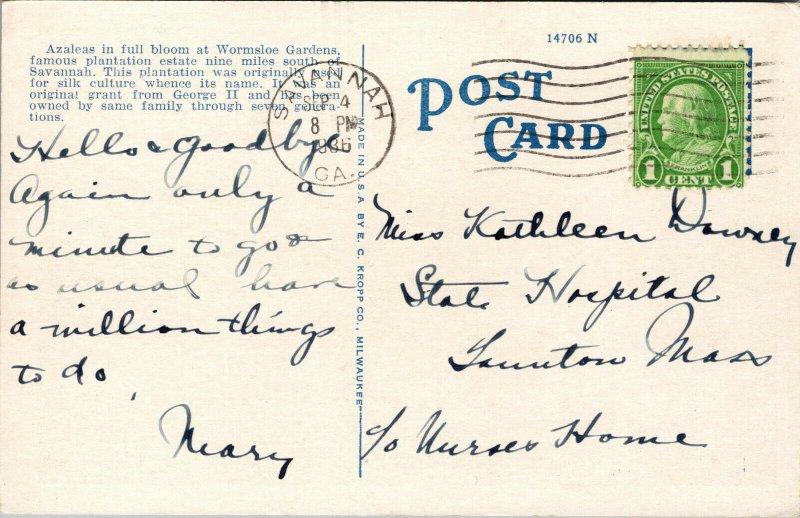 Azaleas in full bloom at Wormsloe Gardens,
famous plantation estate nine miles south of
Savannah. This plantation was originally used
for silk culture whence its name. It was an
original grant from George II and has been
owned by same family through seven genera-
tions.
Hello & Goodbye
Again only a
minute to go &
as usual have
a million things
to do,
Mary
SAVANNAH
SEP 4
8 PM
1936
GA.
MADE IN U.S.A. BY E. C. KROPP CO., MILWAUKEE
14706 N
POST
CARD
UNITED STATES POSTAGE
FRANKLIN
1 CENT 1
Miss Kathleen Downey
State Hospital
Taunton Mass
c/o Nurses Home